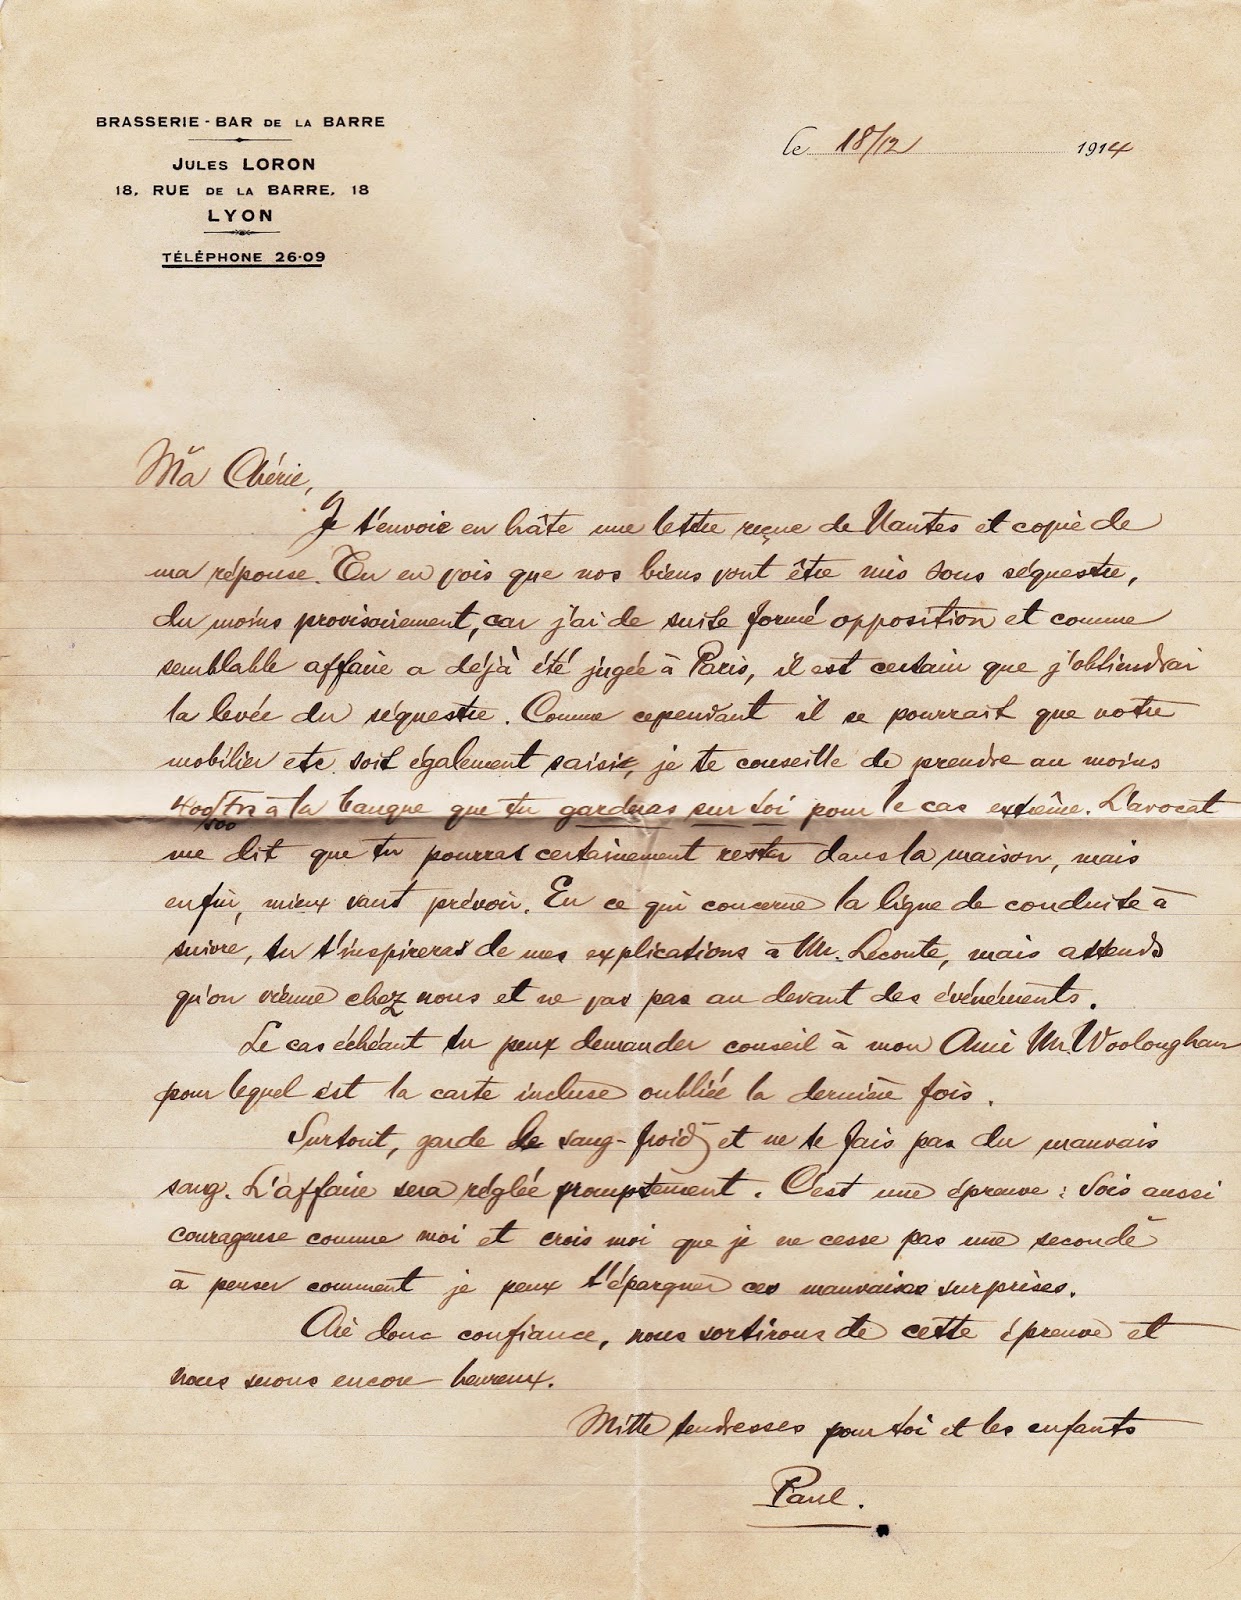 BRASSERIE - BAR DE LA BARRE
JULES LORON
18, RUE DE LA BARRE, 18
LYON
TÉLÉPHONE 26-09
le 18/12 1914
Ma Chérie,
Je t'envoie en hâte une lettre reçue de Nantes et copie de
ma réponse. Tu en vois que nos biens vont être mis sous séquestre,
du moins provisoirement, car j'ai de suite formé opposition et comme
semblable affaire a déjà été jugée à Paris, il est certain que j'obtiendrai
la levée du séquestre. Comme cependant il se pourrait que notre
mobilier etc. soit également saisie, je te conseille de prendre au moins
400/500 frs à la banque que tu garderas sur toi pour le cas extrême. L'avocat
me dit que tu pourras certainement rester dans la maison, mais
enfin, mieux vaut prévoir. En ce qui concerne la ligne de conduite à
suivre, tu t'inspireras de mes explications à Mr. Leconte, mais attends
qu'on vienne chez nous et ne vas pas au devant des événéments.
Le cas échéant tu peux demander conseil à mon Ami Mr. Wooloughan
pour lequel est la carte incluse oubliée la dernière fois.
Surtout, garde le sang-froid et ne te fais pas du mauvais
sang. L'affaire sera réglée promptement. C'est une épreuve : Sois aussi
courageuse comme moi et crois moi que je ne cesse pas une seconde
à penser comment je peux t'épargner ces mauvaises surprises.
Aie donc confiance, nous sortirons de cette épreuve et
nous serons encore heureux.
Mille tendresses pour toi et les enfants
Paul.